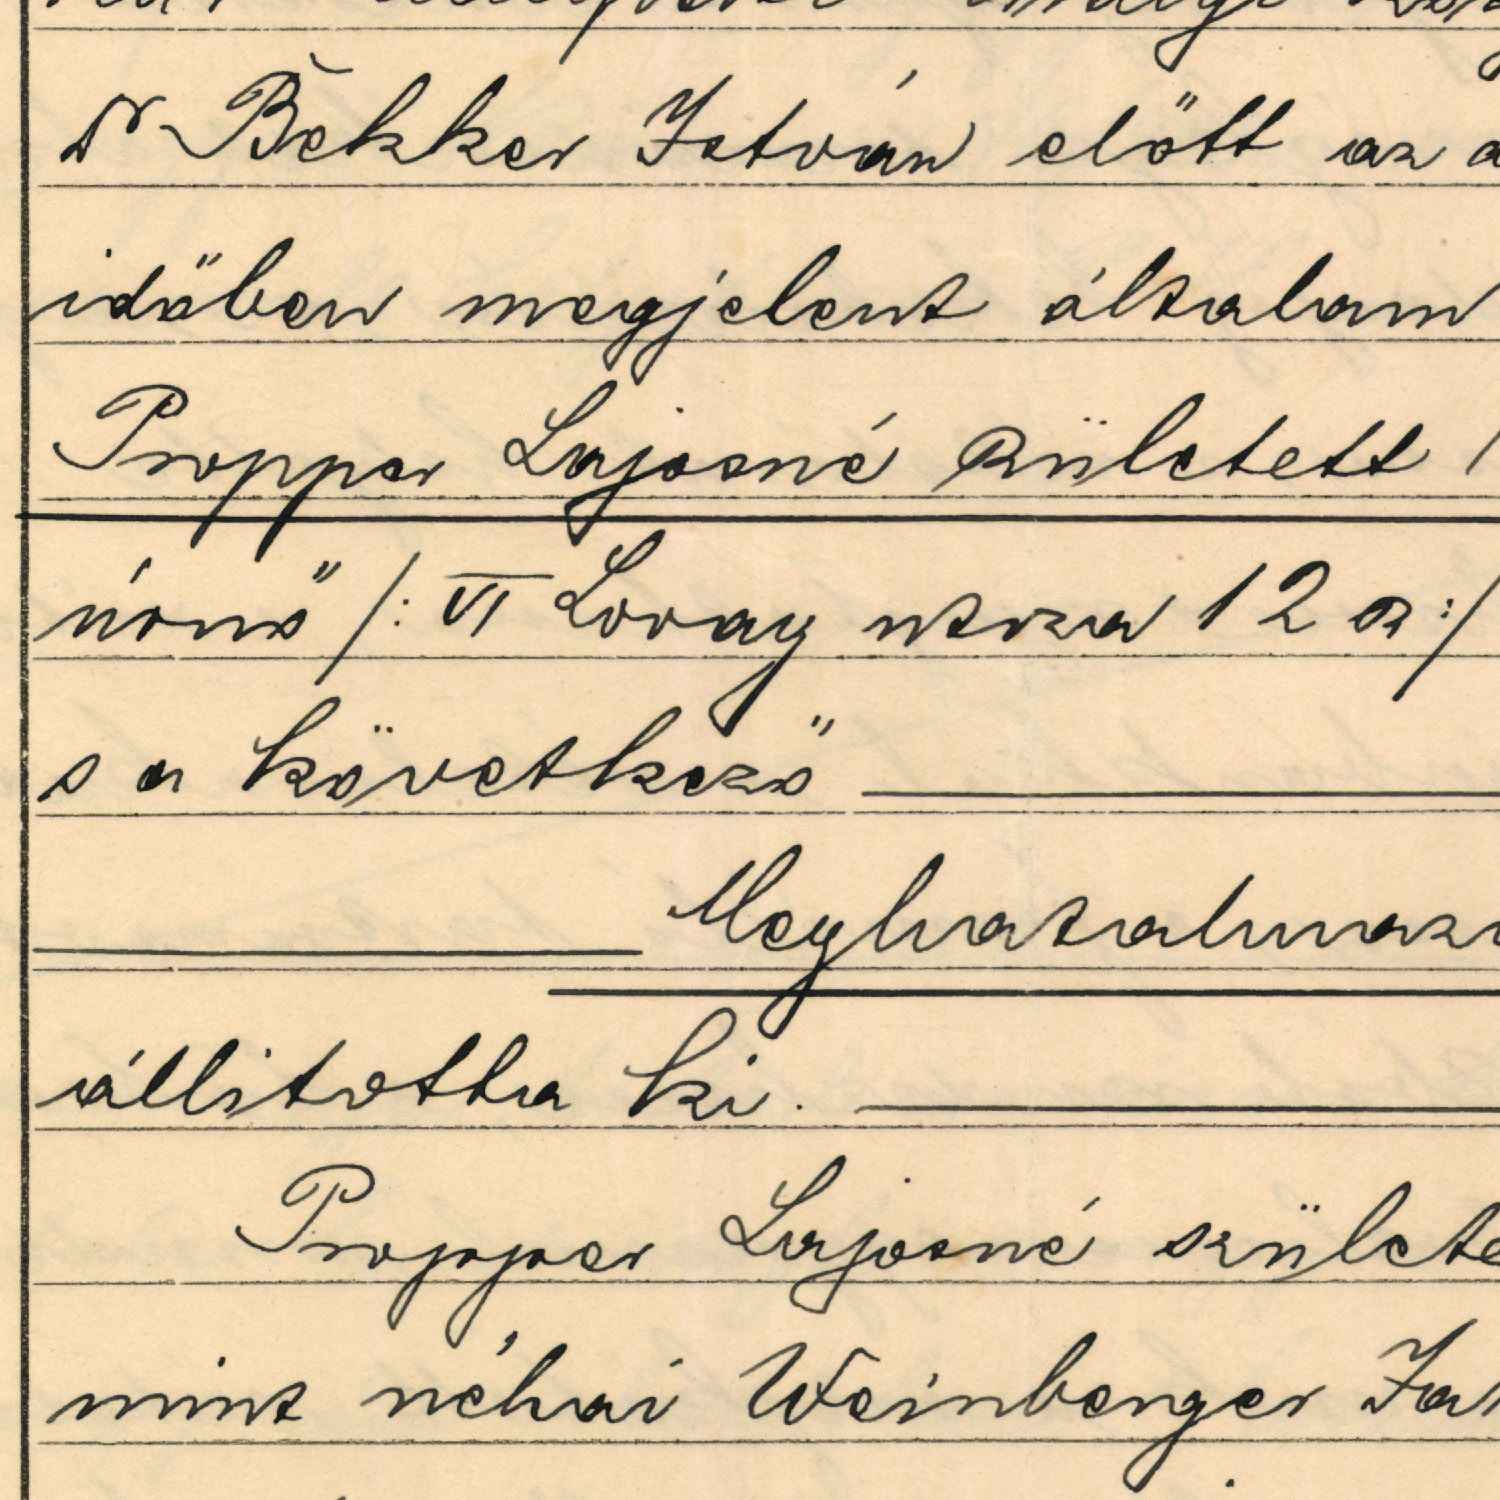 dr Bekker István előtt az
időben megjelent általam
Propper Lajosné született
úrnő /: VI Lovag utcza 12 sz :/
s a következő
Meghatalmazá
állitotta ki.
Propper Lajosné születe
mint néhai Weinberger